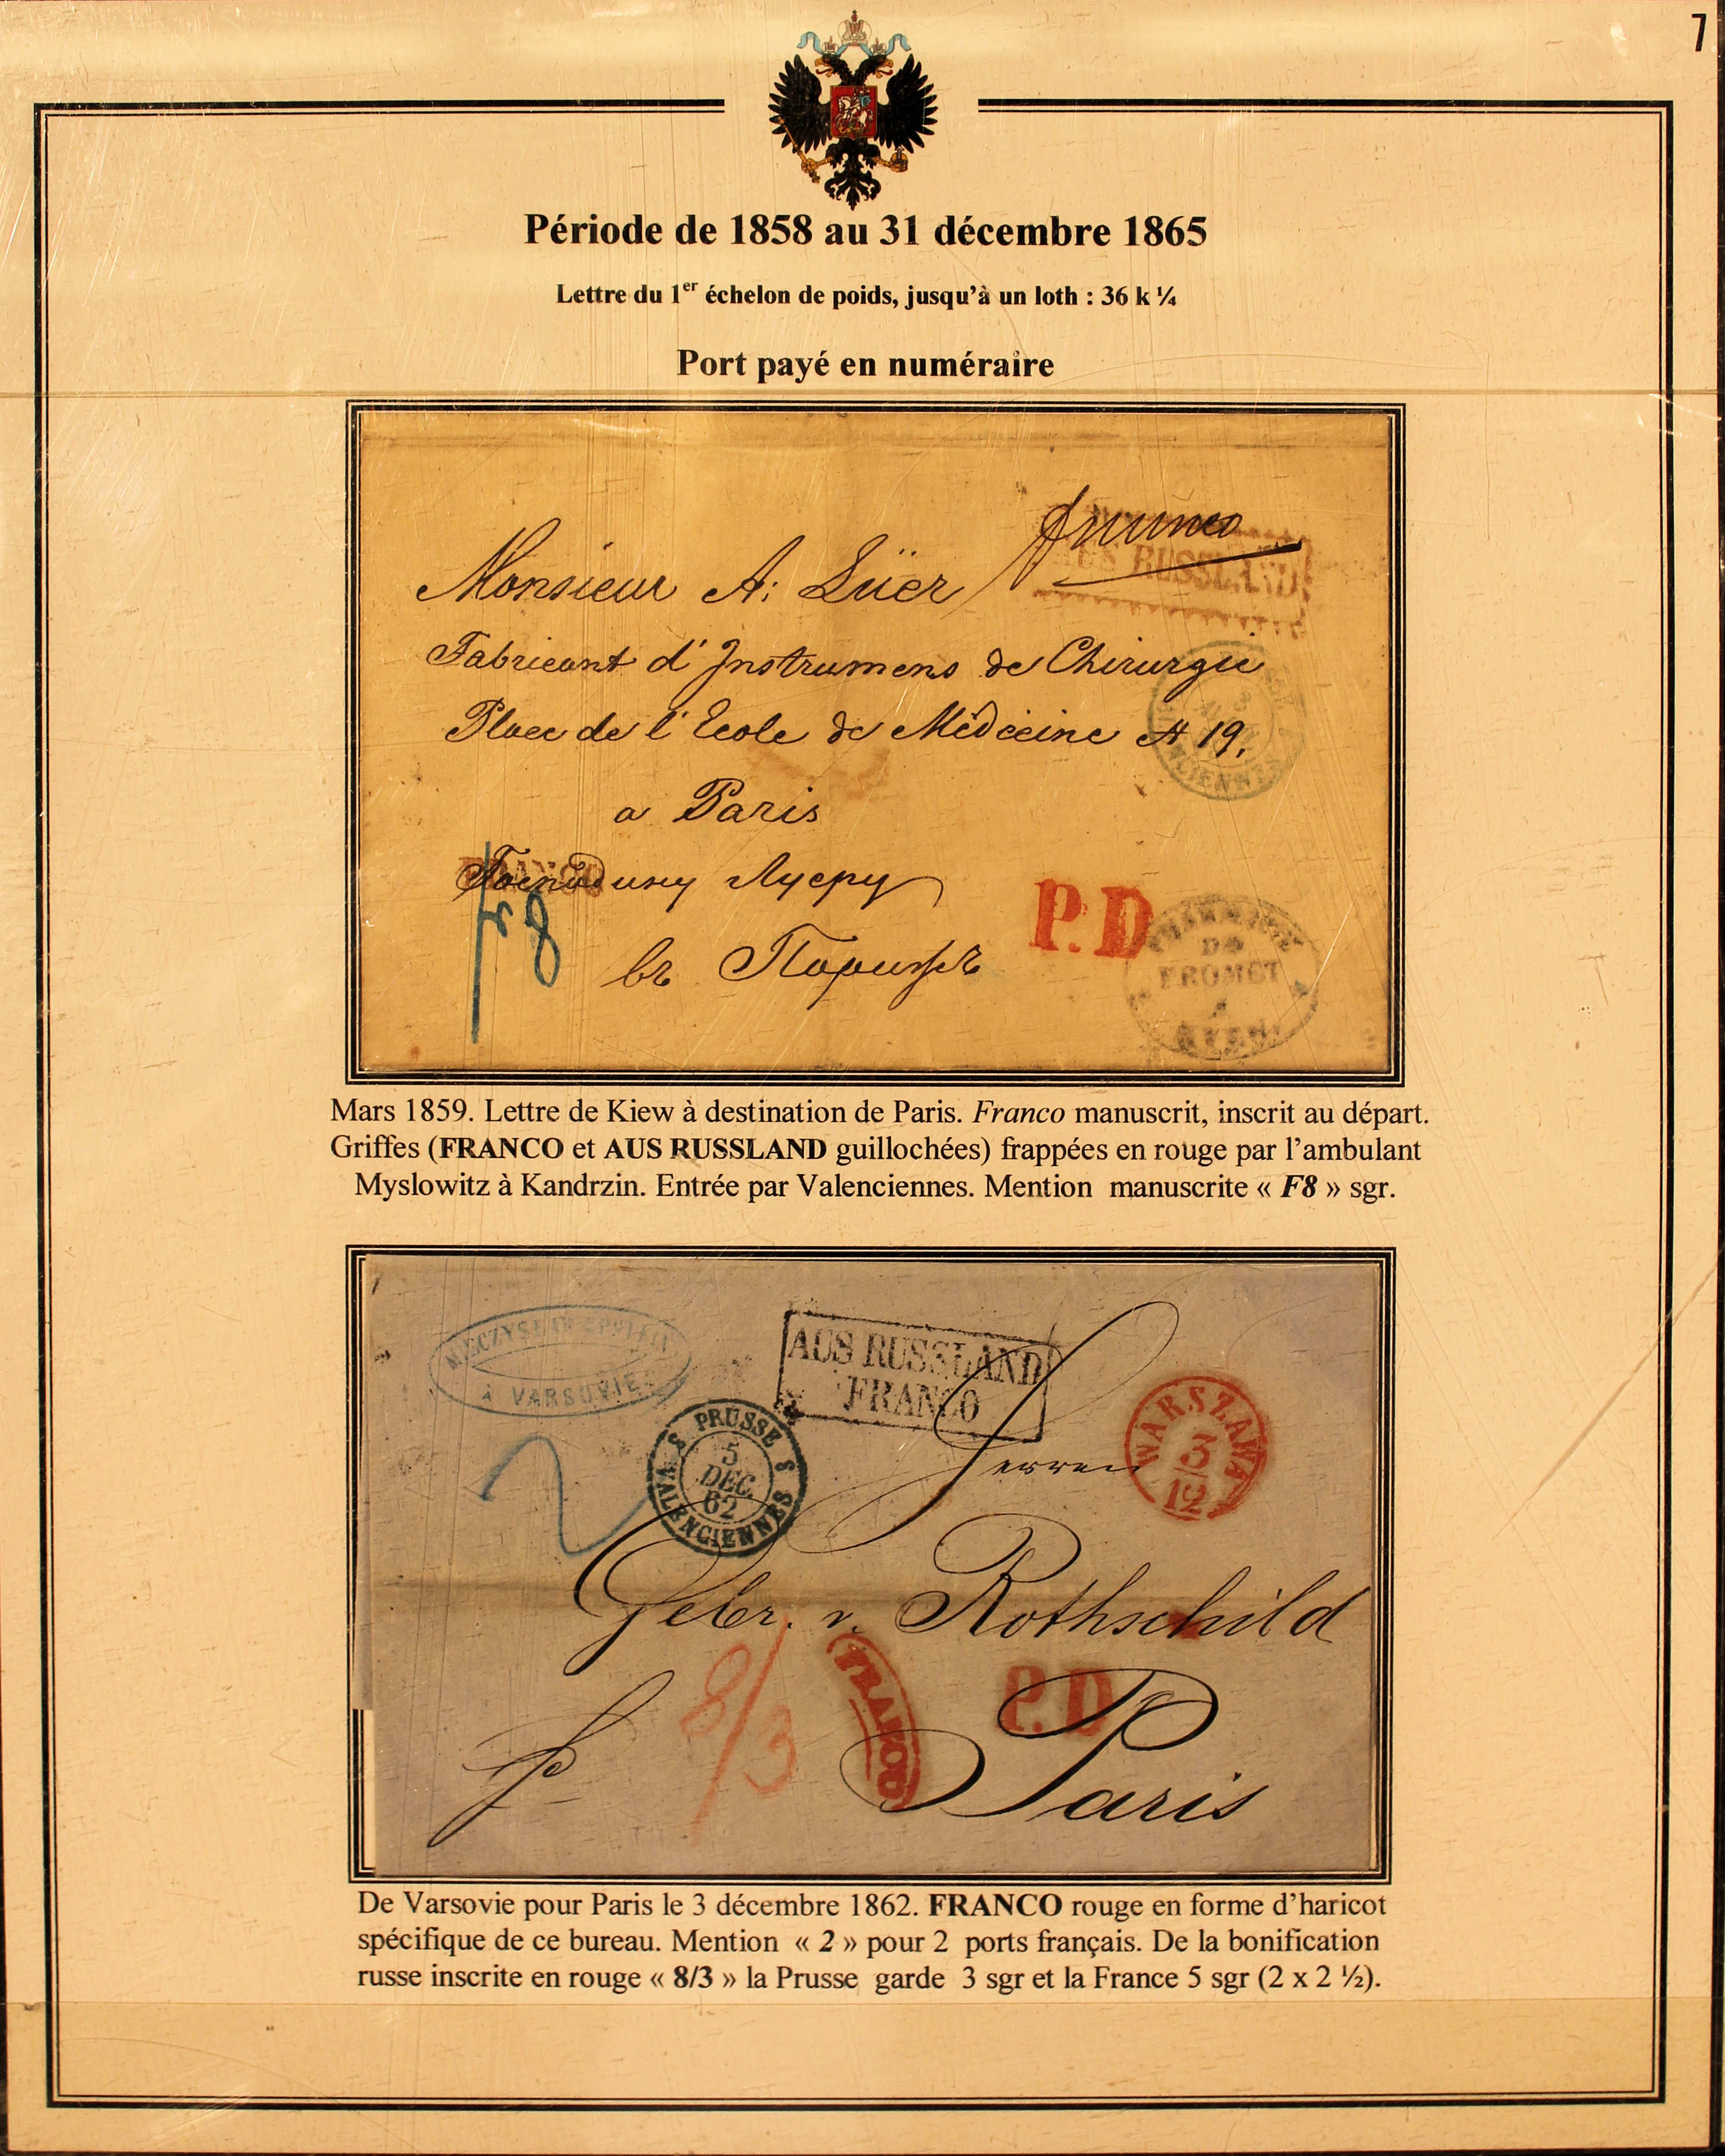 7
Période de 1858 au 31 décembre 1865
Lettre du 1er échelon de poids, jusqu'à un loth : 36 k ¼
Port payé en numéraire
franco
AUS RUSSLAND
Monsieur A: Lüer
Fabricant d'Instrumens de Chirurgie
Place de l'Ecole de Médecine № 19.
a Paris
FRANCO
Господину Люеру
F8
P.D
въ Парижъ
DE
FROMET
A
KIEW
Mars 1859. Lettre de Kiew à destination de Paris. Franco manuscrit, inscrit au départ.
Griffes (FRANCO et AUS RUSSLAND guillochées) frappées en rouge par l'ambulant
Myslowitz à Kandrzin. Entrée par Valenciennes. Mention manuscrite « F8 » sgr.
A VARSOVIE
AUS RUSSLAND
FRANCO
WARSZAWA
3/12
PRUSSE
5
DEC.
62
VALENCIENNES
2
Herren
Gebr. v. Rothschild
8/3
FRANCO
P.D
Paris
De Varsovie pour Paris le 3 décembre 1862. FRANCO rouge en forme d'haricot
spécifique de ce bureau. Mention « 2 » pour 2 ports français. De la bonification
russe inscrite en rouge « 8/3 » la Prusse garde 3 sgr et la France 5 sgr (2 x 2 ½).